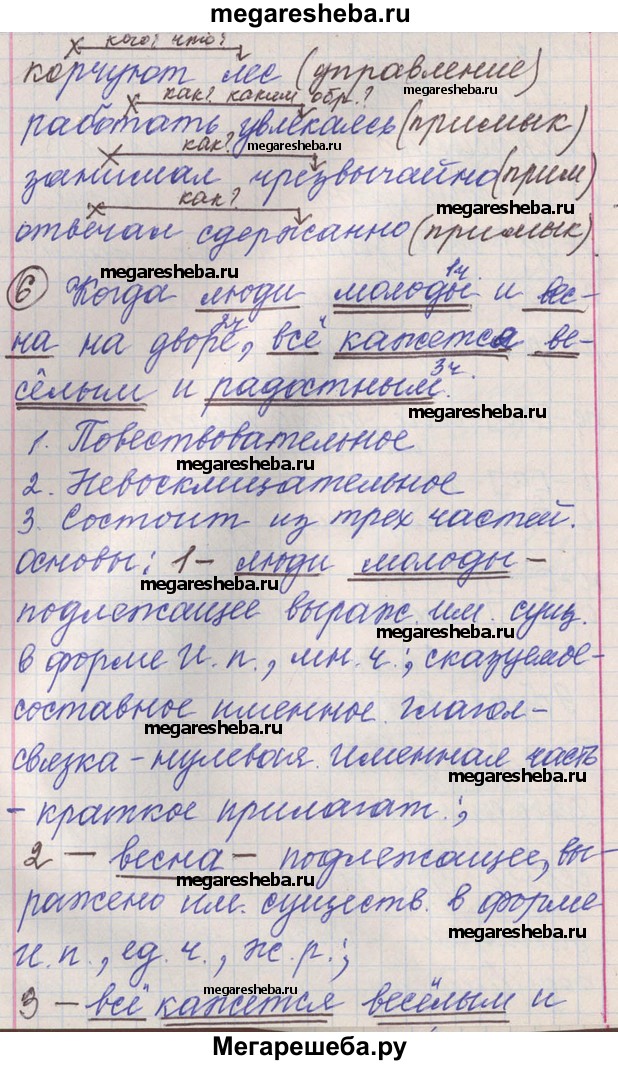 megaresheba.ru
кого? что?
корчуют лес (управление)
megaresheba.ru
как? каким обр.?
работать увлекаясь (примык)
megaresheba.ru
как?
занимал чрезвычайно (прим)
megaresheba.ru
как?
отвечал сдержанно (примык)
megaresheba.ru
1ч
6 Когда люди молоды и вес-
2ч
на на дворе, всё кажется ве-
3ч.
сёлым и радостным.
megaresheba.ru
1. Повествовательное
megaresheba.ru
2. Невосклицательное
3. Состоит из трех частей.
megaresheba.ru
Основы: 1 - люди молоды -
megaresheba.ru
подлежащее выраж. им. сущ.
megaresheba.ru
в форме И.п., мн.ч.; сказуемое -
составное именное. глагол-
megaresheba.ru
связка - нулевая. Именная часть
megaresheba.ru
- краткое прилагат.;
2 - весна - подлежащее, вы-
megaresheba.ru
ражено им. существ. в форме
megaresheba.ru
И.п., ед.ч., ж.р.;
megaresheba.ru
3 - всё кажется весёлым и
megaresheba.ru
Мегарешеба.ру